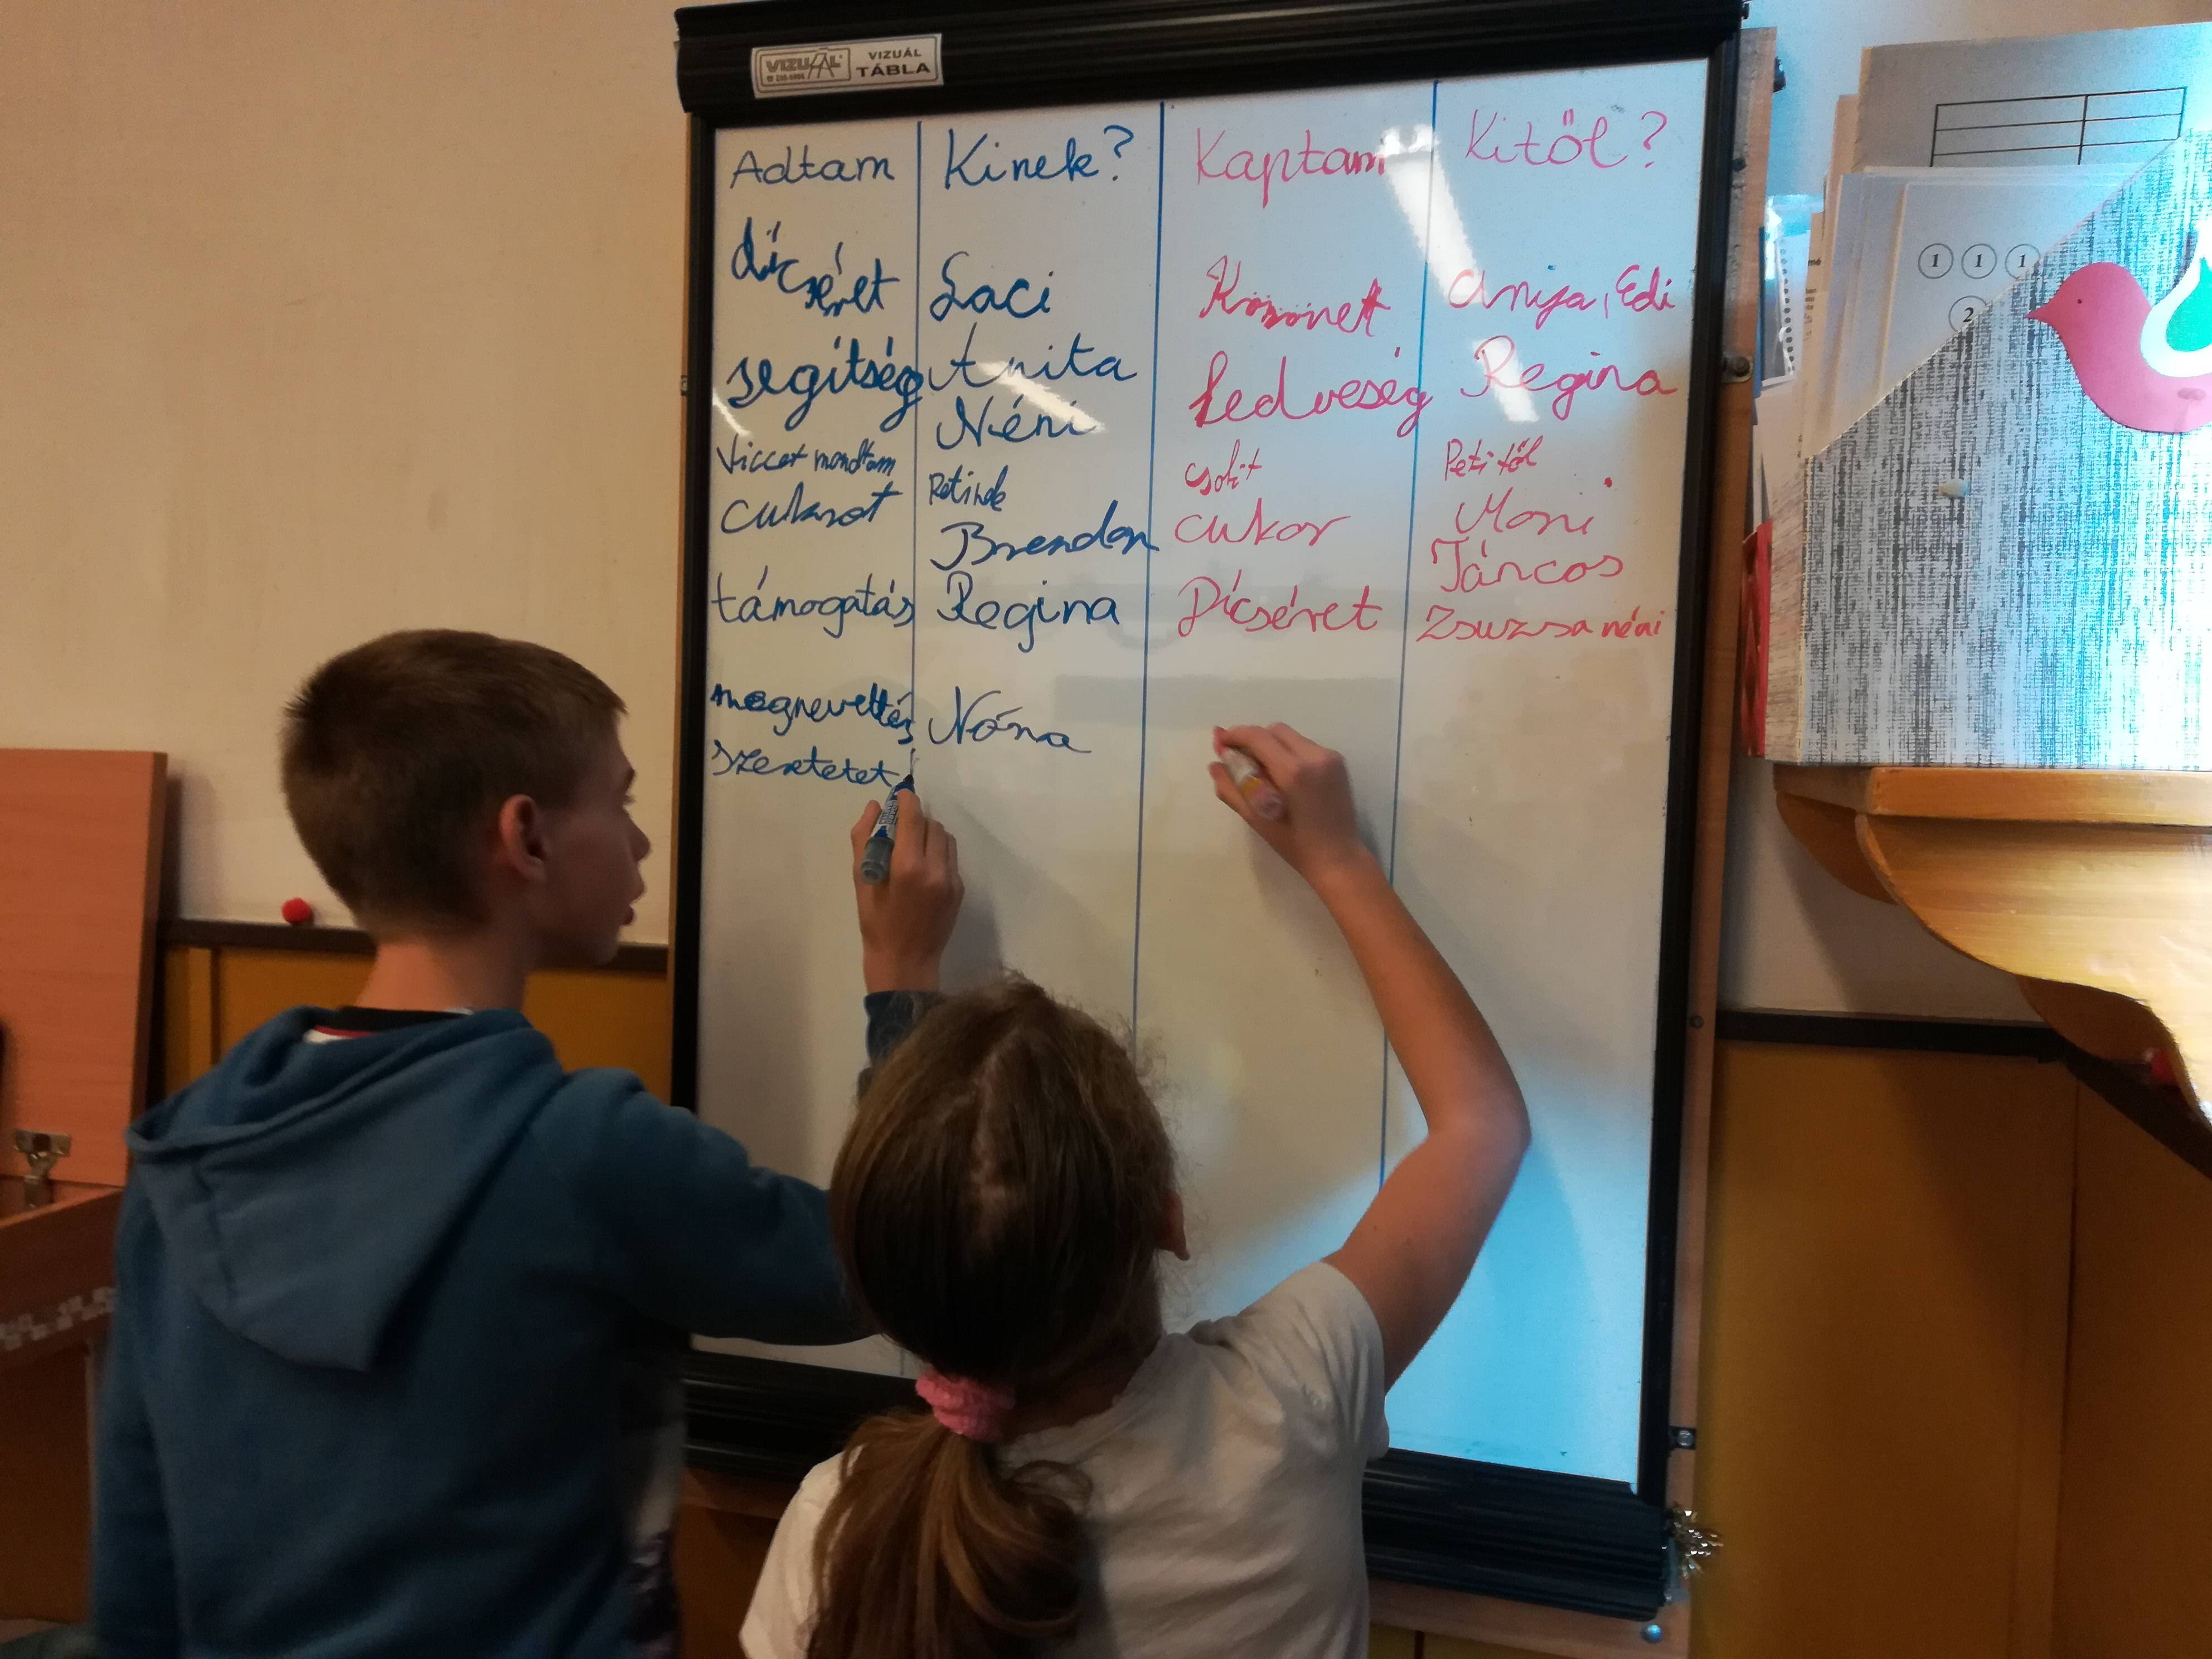 VIZUÁL VIZUÁL
TÁBLA
Adtam Kinek? Kaptam Kitől?
dícséret Laci Köszönet Anya, Edi
segítség Anita Kedveség Regina
Néni
Viccet mondtam Petinek Petitől
cukrot Brendon cukor Moni
Táncos
támogatás Regina Dícséret Zsuzsa néni
megnevettés Nóra
szeretetet
1 1 1
2